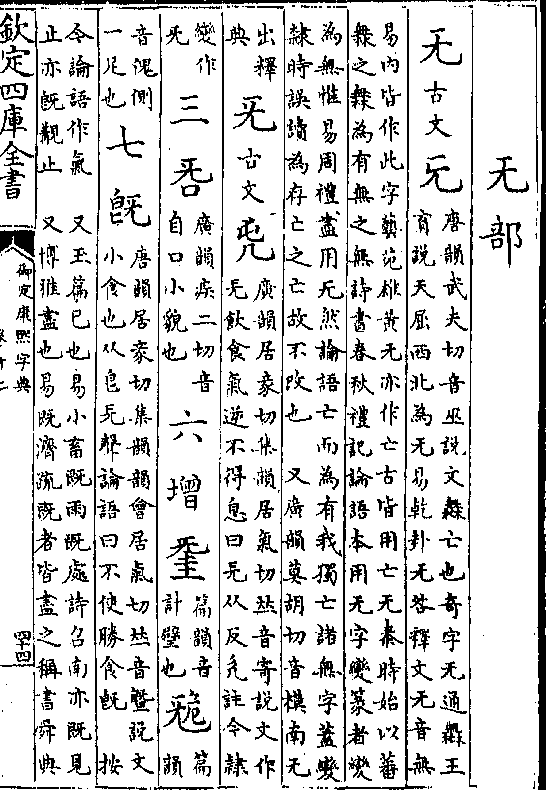 无部
无 古文 𠑶 唐韻武夫切音巫說文橆亡也奇字无通橆王
育說天屈西北為无易乾卦无咎釋文无音無
易內皆作此字藝苑雄黃无亦作亡古皆用亡无秦時始以蕃
橆之橆為有無之無詩書春秋禮記論語本用无字變篆者變
為無惟易周禮盡用无然論語亡而為有我獨亡諸無字蓋變
隸時誤讀為存亡之亡故不改也 又廣韻莫胡切音模南无
出釋
典
旡 古文 㒫 廣韻居豙切集韻居氣切𠀤音寄說文作
旡飲食氣逆不得息曰旡从反欠註今隸
變作
旡
三 廣韻疾二切音
自口小貌也
六 增 篇韻音
計璧也
篇
韻
音溾側
一足也
七 旣 唐韻居豙切集韻韻會居氣切𠀤音曁說文
小食也从皀旡聲論語曰不使勝食旣 按
今論語作氣 又玉篇已也易小畜既雨既處詩召南亦既見
止亦既觀止 又博雅盡也易既濟疏既者皆盡之稱書舜典
欽定四庫全書
御定康熙字典
卷十二
四十四